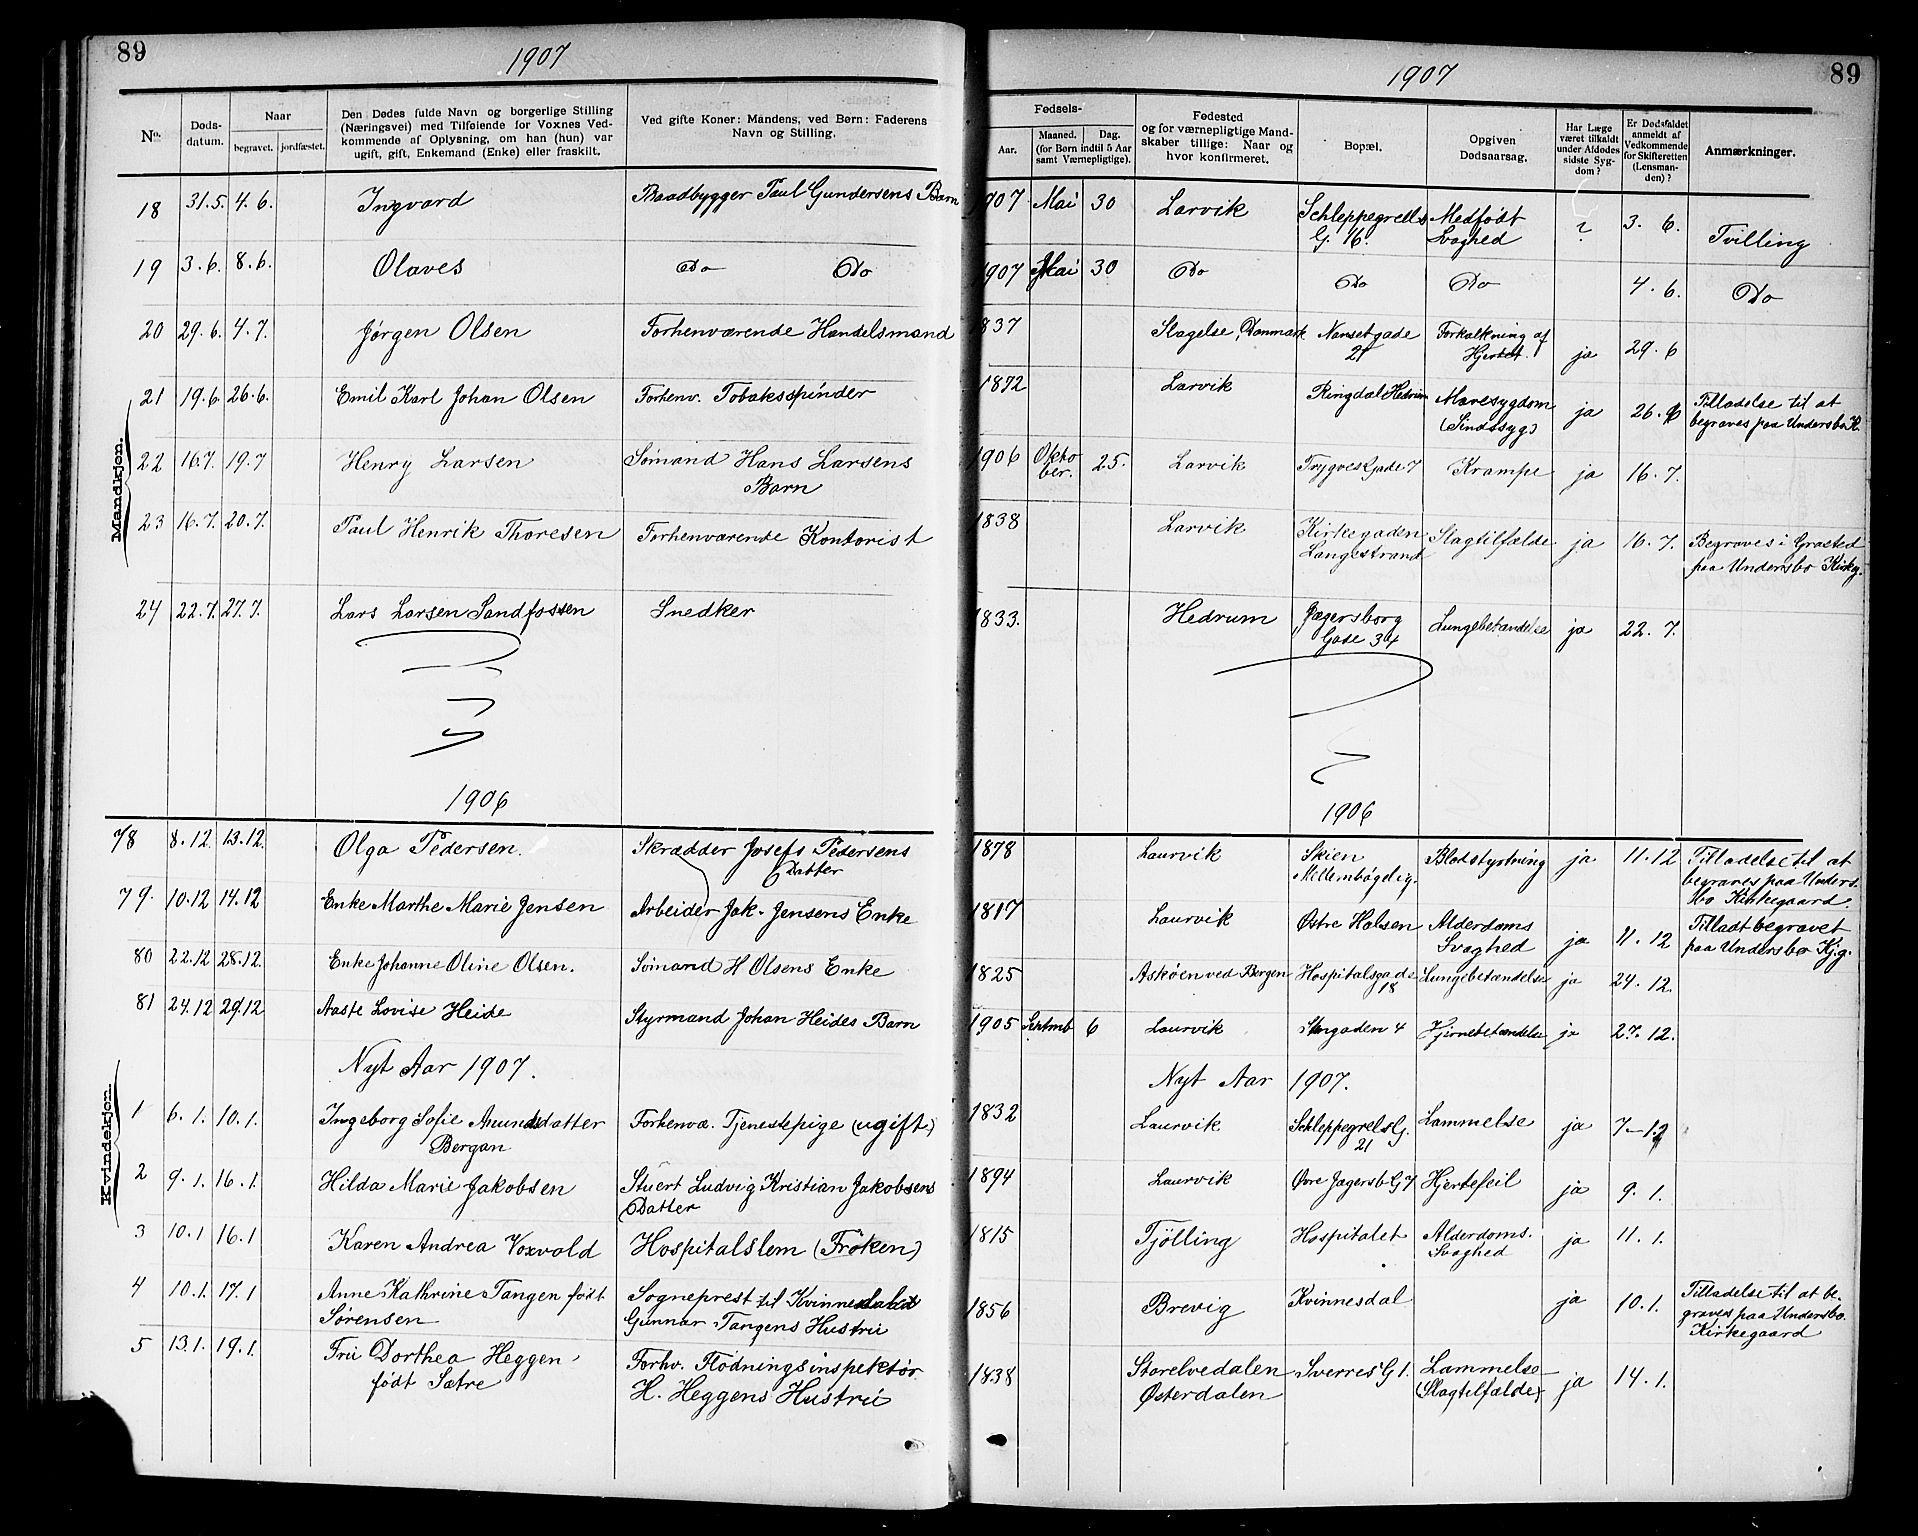 89
1907
No.
Døds-
datum.
Naar
begravet. jordfæstet.
Den Dødes fulde Navn og borgerlige Stilling
(Næringsvei) med Tilføiende for Voxnes Ved-
kommende af Oplysning, om han (hun) var
ugift, gift, Enkemand (Enke) eller fraskilt.
Ved gifte Koner: Mandens, ved Børn: Faderens
Navn og Stilling.
Mandkjøn.
18 31.5. 4.6. Ingvard Baadbygger Paul Gundersens Barn
19 3.6. 8.6. Olaves Do Do
20 29.6. 4.7. Jørgen Olsen Forhenværende Handelsmand
21 19.6. 26.6. Emil Karl Johan Olsen Forhenv. Tobaksspinder
22 16.7. 19.7 Henry Larsen Sømand Hans Larsens
Barn
23 16.7. 20.7. Paul Henrik Thoresen Forhenværende Kontorist
24 22.7. 27.7. Lars Larsen Sandfossen Snedker
1906
78 8.12. 13.12. Olga Pedersen. Skrædder Josefs Pedersens
Datter
79. 10.12 14.12 Enke Marthe Marie Jensen Arbeider Jak. Jensens Enke
80 22.12 28.12. Enke Johanne Oline Olsen. Sømand H Olsens Enke
81 24.12 29.12 Aaste Lovise Heide Styrmand Johan Heides Barn
Nyt Aar 1907.
Kvindekjøn.
1 6.1. 10.1. Ingeborg Sofie Amundsdatter Forhenvæ. Tjenestepige (ugift)
Bergan
2 9.1. 16.1. Hilda Marie Jakobsen Stuert Ludvig Kristian Jakobsens
Datter
3 10.1 16.1 Karen Andrea Voxvold Hospitalslem (Frøken)
4 10.1. 17.1 Anne Kathrine Tangen født Sogneprest til Kvinnesdal
Sørensen Gunnar Tangens Hustru
5 13.1. 19.1. Fru Dorthea Heggen Forhv. Flødningsinspektør
født Sætre H. Heggens Hustru
1907
89
Fødsels-
Aar.
Maaned. Dag.
(for Børn indtil 5 Aar
samt Værnepligtige).
Fødested
og for værnepligtige Mand-
skaber tillige: Naar og
hvor konfirmeret.
Bopæl.
Opgiven
Dødsaarsag.
Har Læge
været tilkaldt
under Afdødes
sidste Syg-
dom?
Er Dødsfaldet
anmeldt af
Vedkommende
for Skifteretten
(Lensman-
den)?
Anmærkninger.
1907 Mai 30 Larvik Schleppegrells Medfødt ? 3. 6. Tvilling
G. 16. Svaghed
1907 Mai 30 Do Do Do 4. 6. Do
1837 Slagelse, Danmark Nansetgade Forkalkning af ja 29. 6
21 Hjertet
1872 Larvik Ringdal Hedrum Mavesygdom ja 26. 6 Tilladelse til at
(Sindssyg) begraves paa Undersbo K.
1906 Okto 25. Larvik Trygves Gade 7 Krampe ja 16. 7.
ber.
1838 Larvik Kirkegaden Slagtilfælde ja 16. 7. Begraves i Gravsted
Langestrand paa Undersbo Kirkeg.
1833. Hedrum Jægersborg Lungebetændelse ja 22. 7.
Gade 34
1906
1878 Laurvik Skien Blodstyrtning ja 11.12 Tilladelse til at
Mellembøgdig. begraves paa Unders-
bo Kirkegaard.
1817 Laurvik Østre Halsen Alderdoms ja 11. 12 Tilladt begravet
Svaghed paa Undersbo Kjg.
1825 Askøen ved Bergen Hospitalsgade Lungebetændelse ja 24. 12.
18
1905 Septmb 6 Laurvik Stengaden 4 Hjernebetændelse ja 27. 12.
Nyt Aar 1907.
1832 Laurvik Schleppegrels G. Lammelse ja 7-1
21
1894 Laurvik Øvre Jagersb G 7 Hjertefeil ja 9. 1.
1815 Tjølling Hospitalet Alderdoms. ja 11. 1.
Svaghed
1856 Brevig Kvinnesdal ja 10. 1. Tilladelse til at be-
graves paa Undersbo
Kirkegaard
1838 Storelvedalen Sverres G 1. Lammelse ja 14. 1.
Østerdalen (Slagtilfælde)